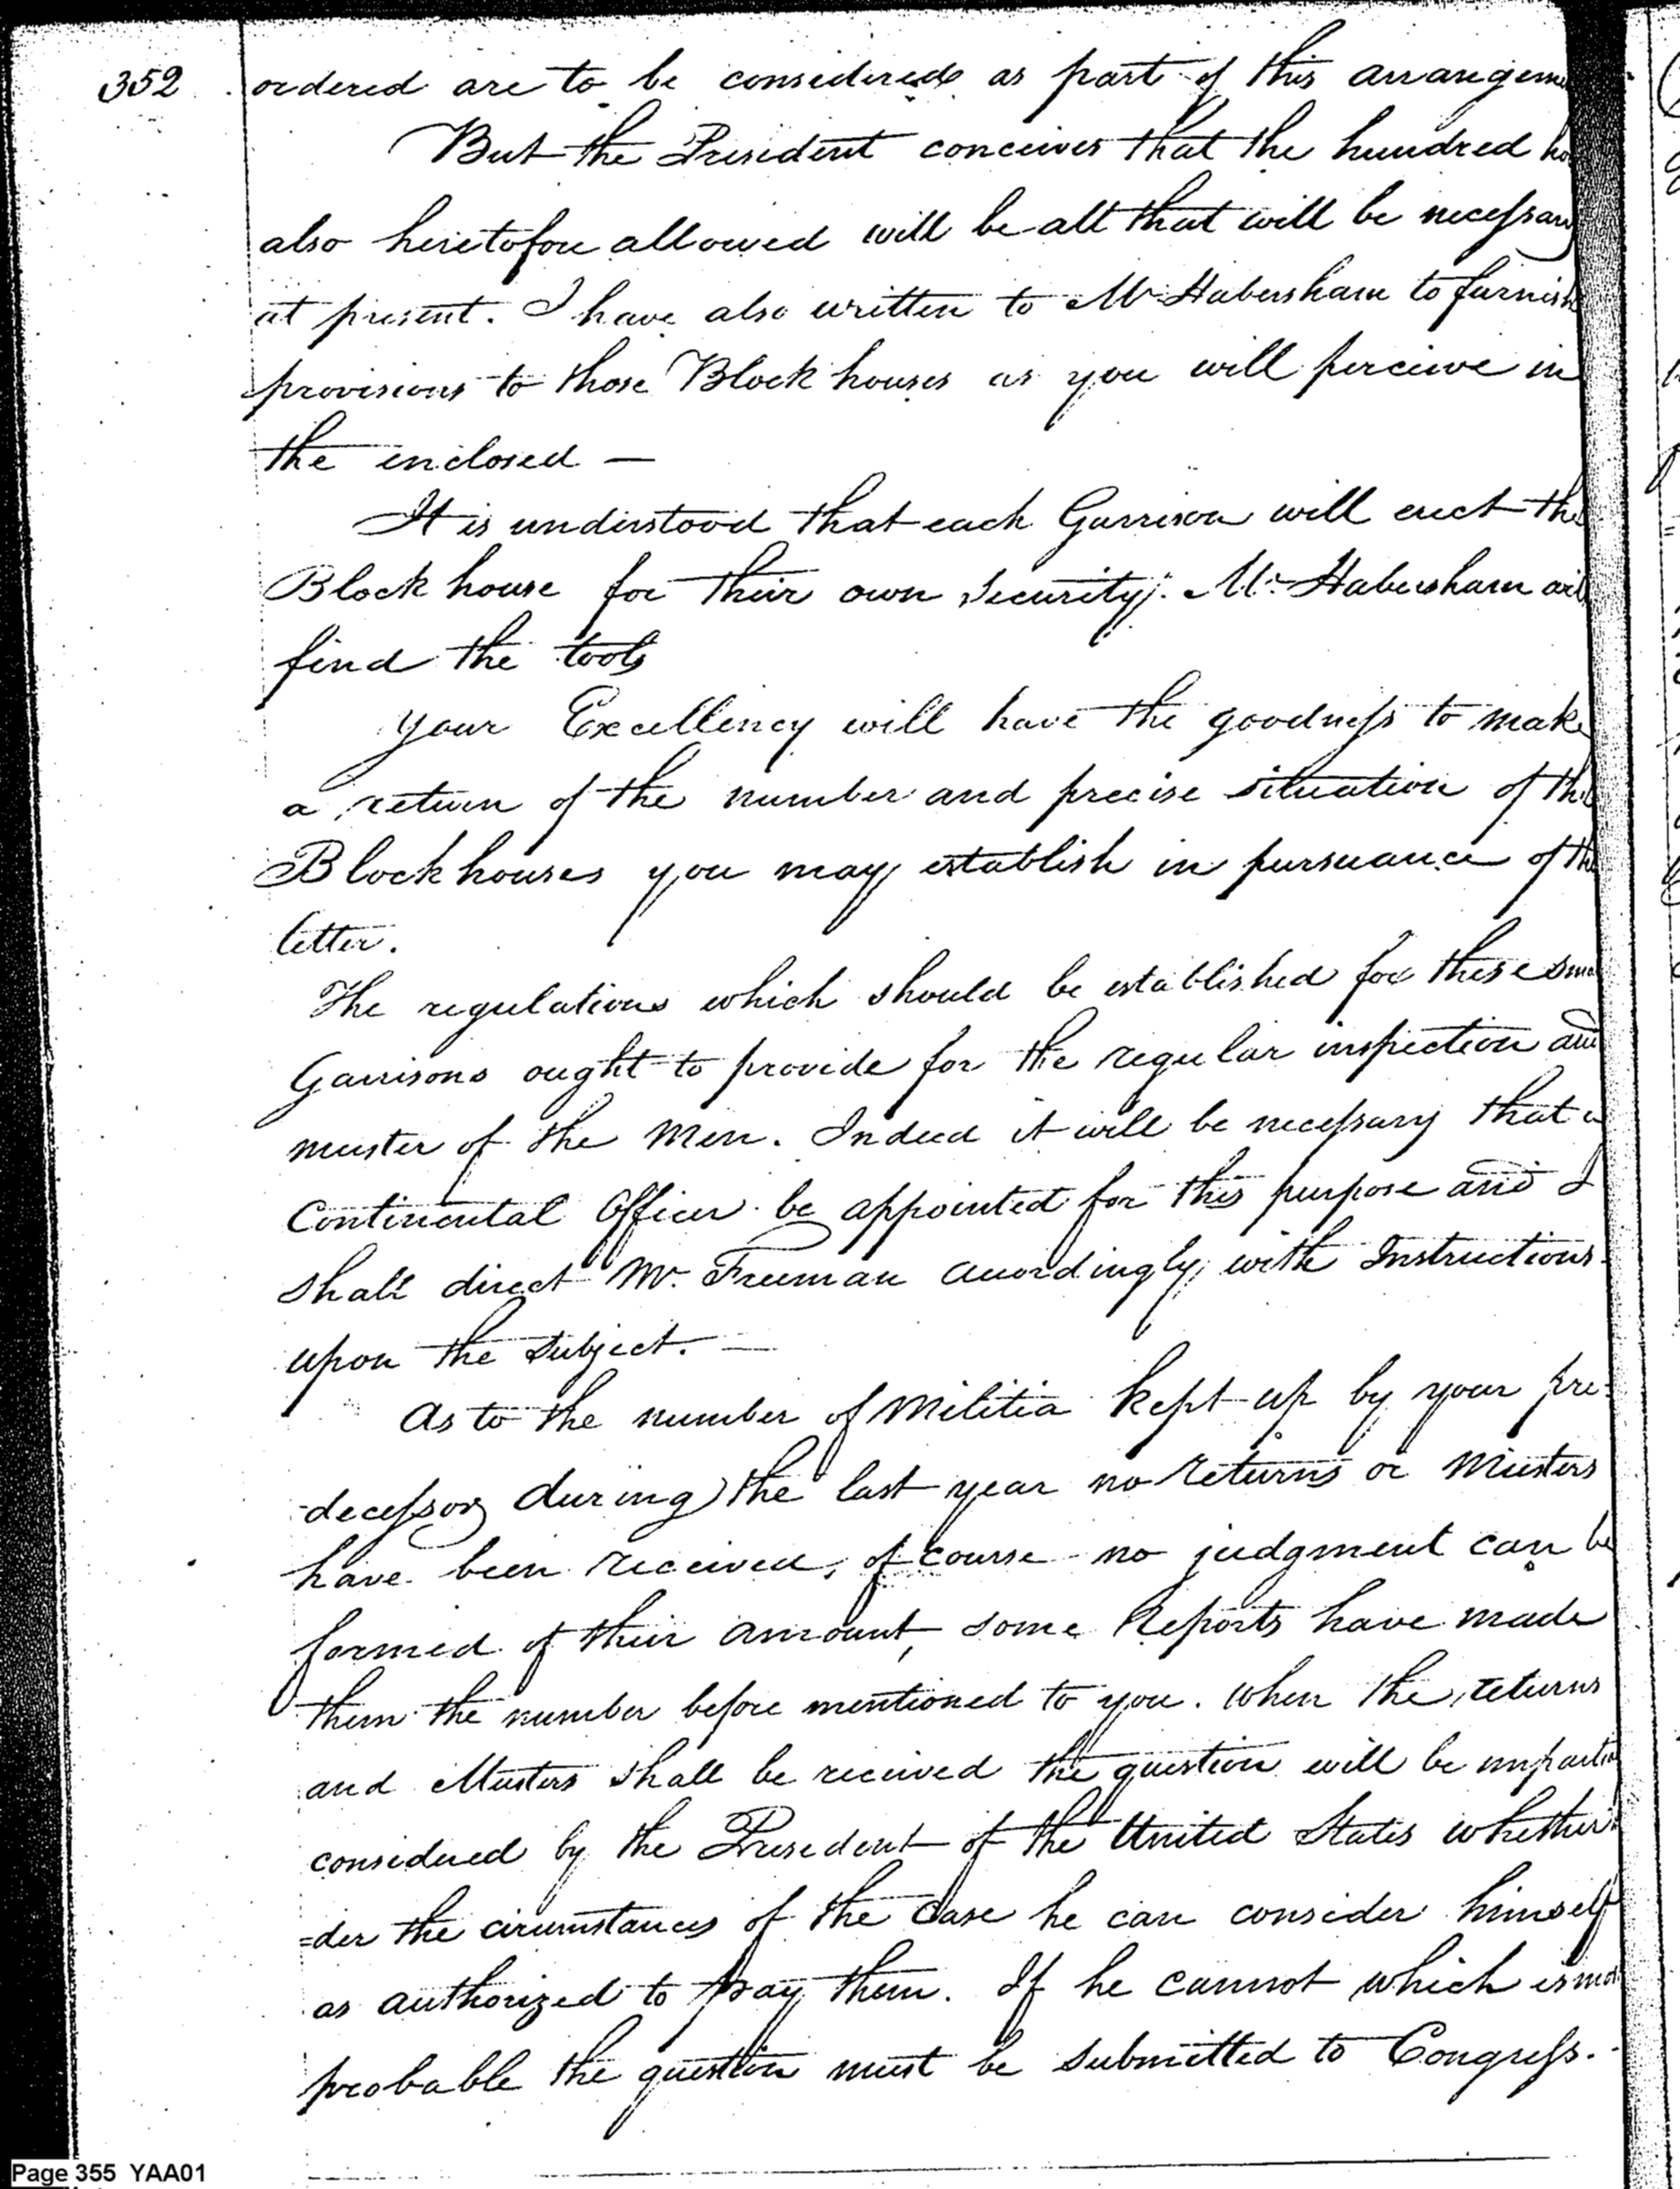 352
ordered are to be considered as part of this arrangeme
But the President conceives that the hundred ho
also heretofore allowed will be all that will be necessary
at present. I have also written to Mr Habersham to furnish
provisions to those Block houses as you will perceive in
the enclosed —
It is understood that each Garrison will erect the
Block house for their own security; Mr Habersham will
find the tools
Your Excellency will have the goodness to make
a return of the number and precise situation of the
Block houses you may establish in pursuance of th
letter.
The regulations which should be established for these sma
Garrisons ought to provide for the regular inspection and
muster of the Men. Indeed it will be necessary that a
Continental Officer be appointed for this purpose and I
shall direct Mr. Freeman accordingly, with Instructions
upon the Subject. —
As to the number of Militia kept up by your pre-
-decessor during the last year no returns or Musters
have been received, of course no judgment can be
formed of their amount, some Reports have made
them the number before mentioned to you. When the returns
and Musters shall be received the question will be impartia
considered by the President of the United States whether
=der the circumstances of the Case he can consider himself
as authorized to pay them. If he cannot which is mo
probable the question must be submitted to Congress.
Page 355 YAA01